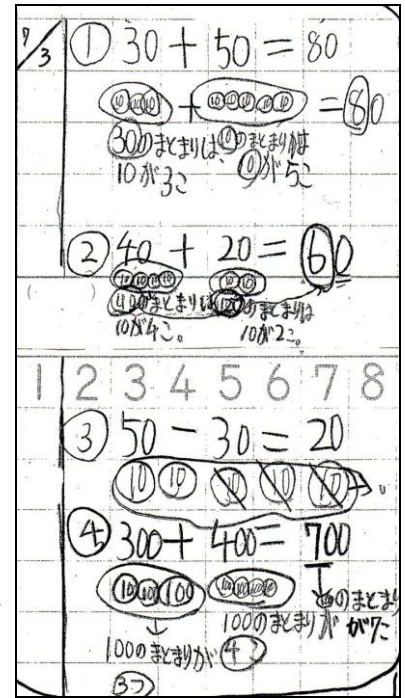 9/3
① 30 + 50 = 80
⑩⑩⑩ + ⑩⑩⑩⑩⑩ = 80
30のまとまりは、
10が3こ
のまとまりは
⑩が5こ
② 40 + 20 = 60
⑩⑩⑩⑩ ⑩⑩
40のまとまりは
10が4こ。
のまとまりは
10が2こ。
1 2 3 4 5 6 7 8
③ 50 − 30 = 20
⑩ ⑩ ⑩ ⑩ ⑩
④ 300 + 400 = 700
100 100 100 100 100 100 100
↓
100のまとまりが
3つ
100のまとまりが
4つ
↓
のまとまり
が7こ